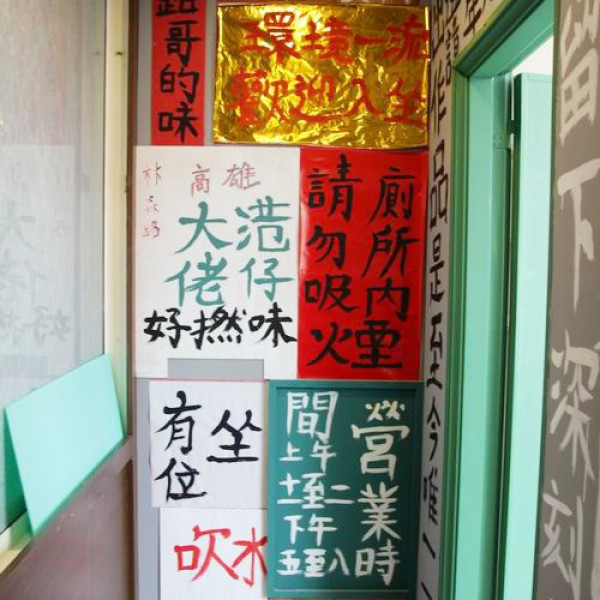 哥的味
環境一流
歡迎入坐
高雄
港仔
大佬
好撚味
廁所內煙
請勿吸火
坐
有位
營業時
間
上午
十至二
下午
五至八
吹水
作品是至今唯一
留下深刻